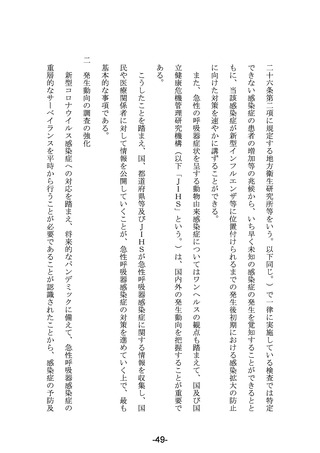 二十六条第二項に規定する地方衛生研究所等をいう。以下同じ。）で一律に実施している検査では特定
できない感染症の患者の増加等の兆候から、いち早く未知の感染症の発生を覚知することができるとと
もに、当該感染症が新型インフルエンザ等に位置付けられるまでの発生後初期における感染拡大の防止
に向けた対策を速やかに講ずることができる。
また、急性の呼吸器症状を呈する動物由来感染症についてはワンヘルスの観点も踏まえて、国及び国
立健康危機管理研究機構（以下「ＪＩＨＳ」という。）は、国内外の発生動向を把握することが重要で
ある。
こうしたことを踏まえ、国、都道府県等及びＪＩＨＳが急性呼吸器感染症に関する情報を収集し、国
民や医療関係者に対して情報を公開していくことが、急性呼吸器感染症の対策を進めていく上で、最も
基本的な事項である。
二　発生動向の調査の強化
新型コロナウイルス感染症への対応を踏まえ、将来的なパンデミックに備えて、急性呼吸器感染症の
重層的なサーベイランスを平時から行うことが必要であることが認識されたことから、感染症の予防及
-49-